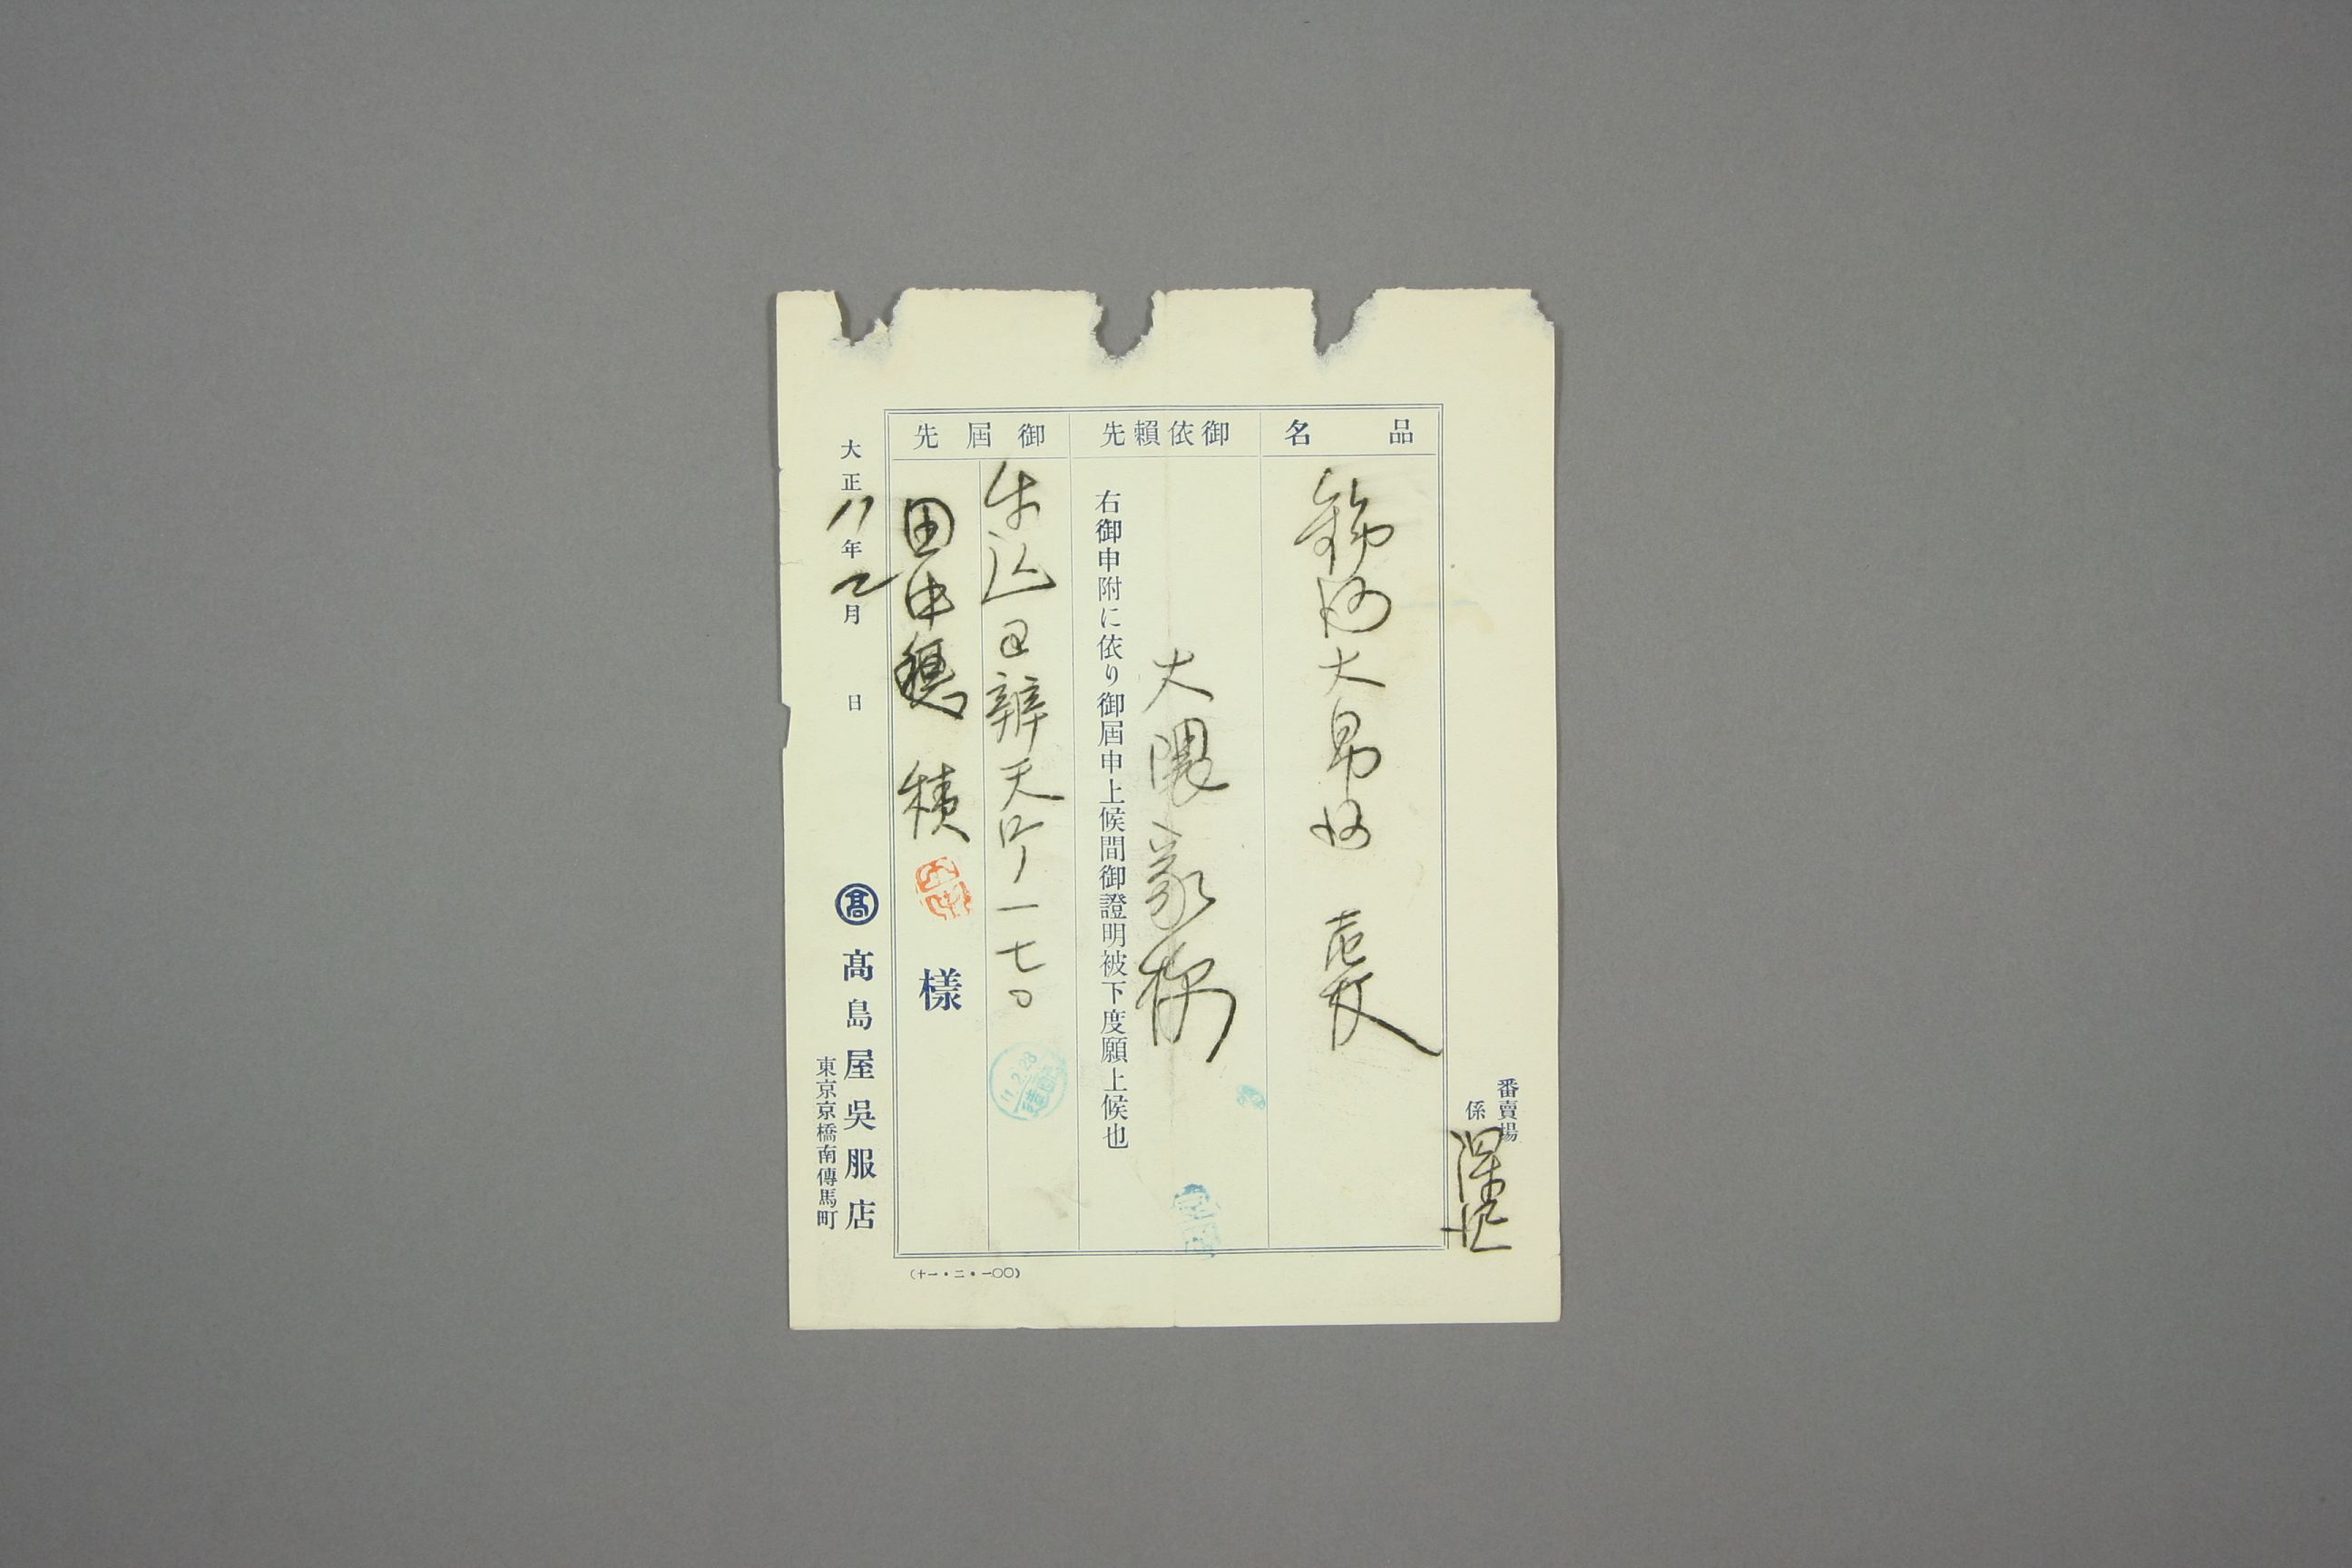 番賣場
係
品名
大
御依賴先
大隈家様
右御申附に依り御屆申上候間御證明被下度願上候也
御屆先
牛込区辨天町一七〇
田中穂積
樣
大正11年2月 日
髙 髙島屋吳服店
東京京橋南傳馬町
(十一・二・一〇〇)
11.2.28